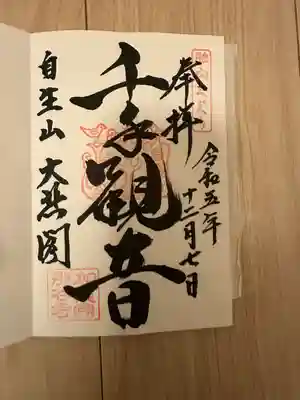 奉拝
令和五年
十二月七日
千手観音
自生山 大悲閣